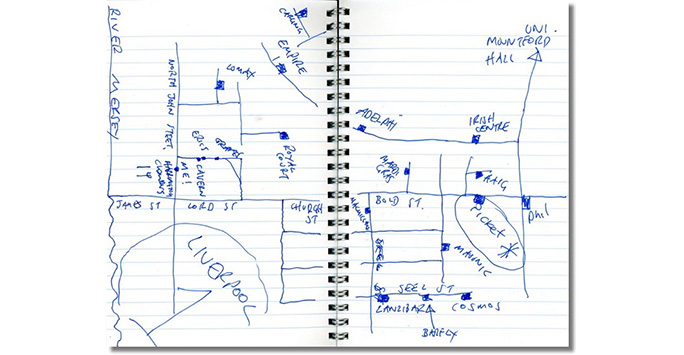 RIVER MERSEY
NORTH JOHN STREET.
LOMAX
CARLING
EMPIRE
ERICS
GRAPES
CAVERN
ME!
14
ROYAL
COURT
JAMES ST
LORD ST
CHURCH
ST
LIVERPOOL
UNI.
MOUNTFORD
HALL
ADELPHI
IRISH
CENTRE
MARDI
GRAS
BOLD ST.
Phil
PICKET
MASONIC
SEEL ST
ZANZIBAR
COSMOS
BAREFLY